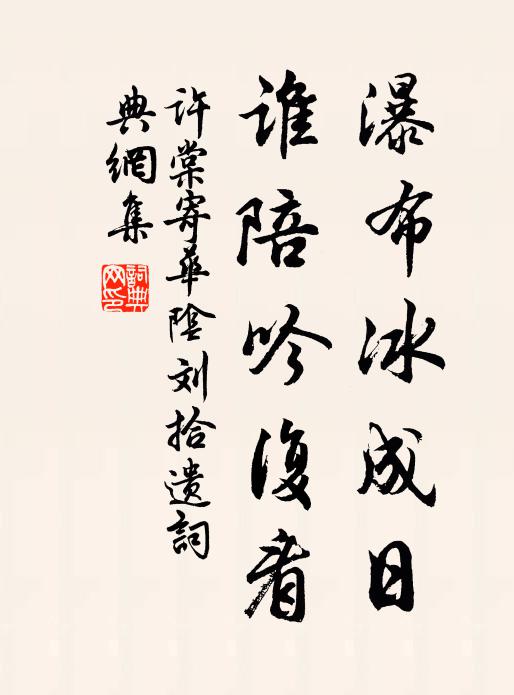 瀑布冰成日
谁陪吟復看
许棠寄華陰刘拾遗詞
典網集
詞典
网印